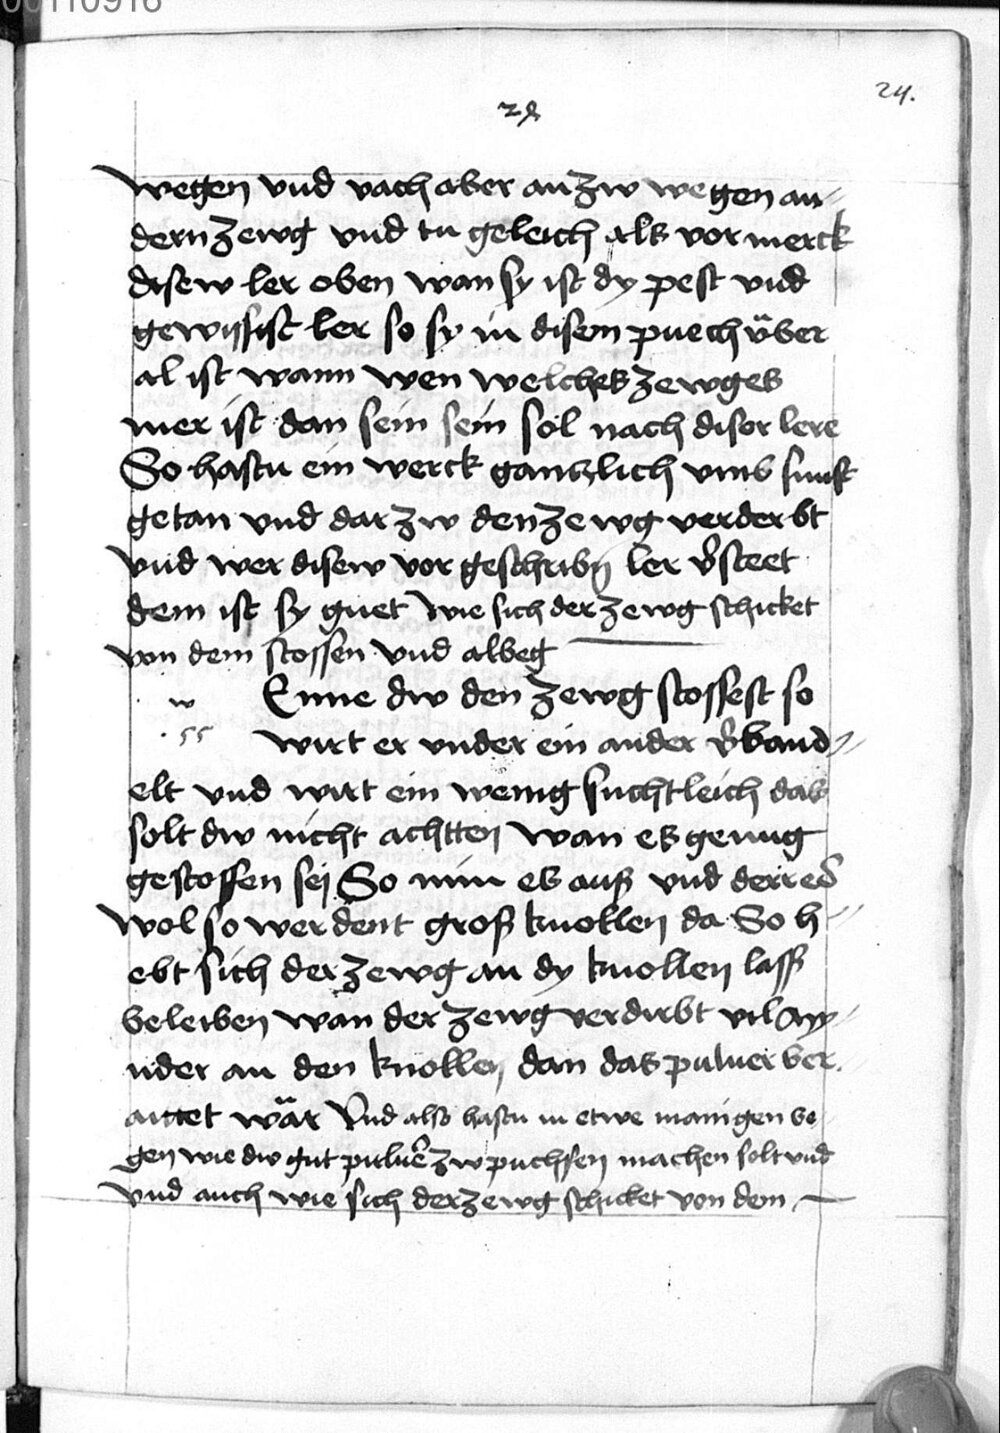 00110916
24.
28
wegen vnd vach aber an zw wegen an-
dern zewg vnd tu geleich als vor merck
disew ler oben wan sy ist dy pest vnd
gewissist ler so sy in disem puech über
al ist wann wen welches zewges
mer ist dan sein sein sol nach diser lere
So hastu ein werck gantzlich vmb sunst
getan vnd dar zw den zewg verderbt
vnd wer disew vor geschribn ler v̄steet
dem ist sy guet Wie sich der zewg schicket
von dem stossen vnd albeg
w Enne dw den zewg stossest so
55 wirt er vnder ein ander v̄band-
elt vnd wirt ein wenig fuchtleich das
solt dw nicht achtten wan es genug
gestossen sej So nim es auß vnd derr es
wol so werdent groß knollen da So h-
ebt sich der zewg an dy knollen lass
beleiben wan der zewg verdirbt vil my-
nder an den knollen dan das puluer ber-
aittet wär Vnd also hastu in etwe manigen be-
gen wie dw gut puluer zw puchsen machen solt vnd
vnd auch wie sich der zewg schicket von dem